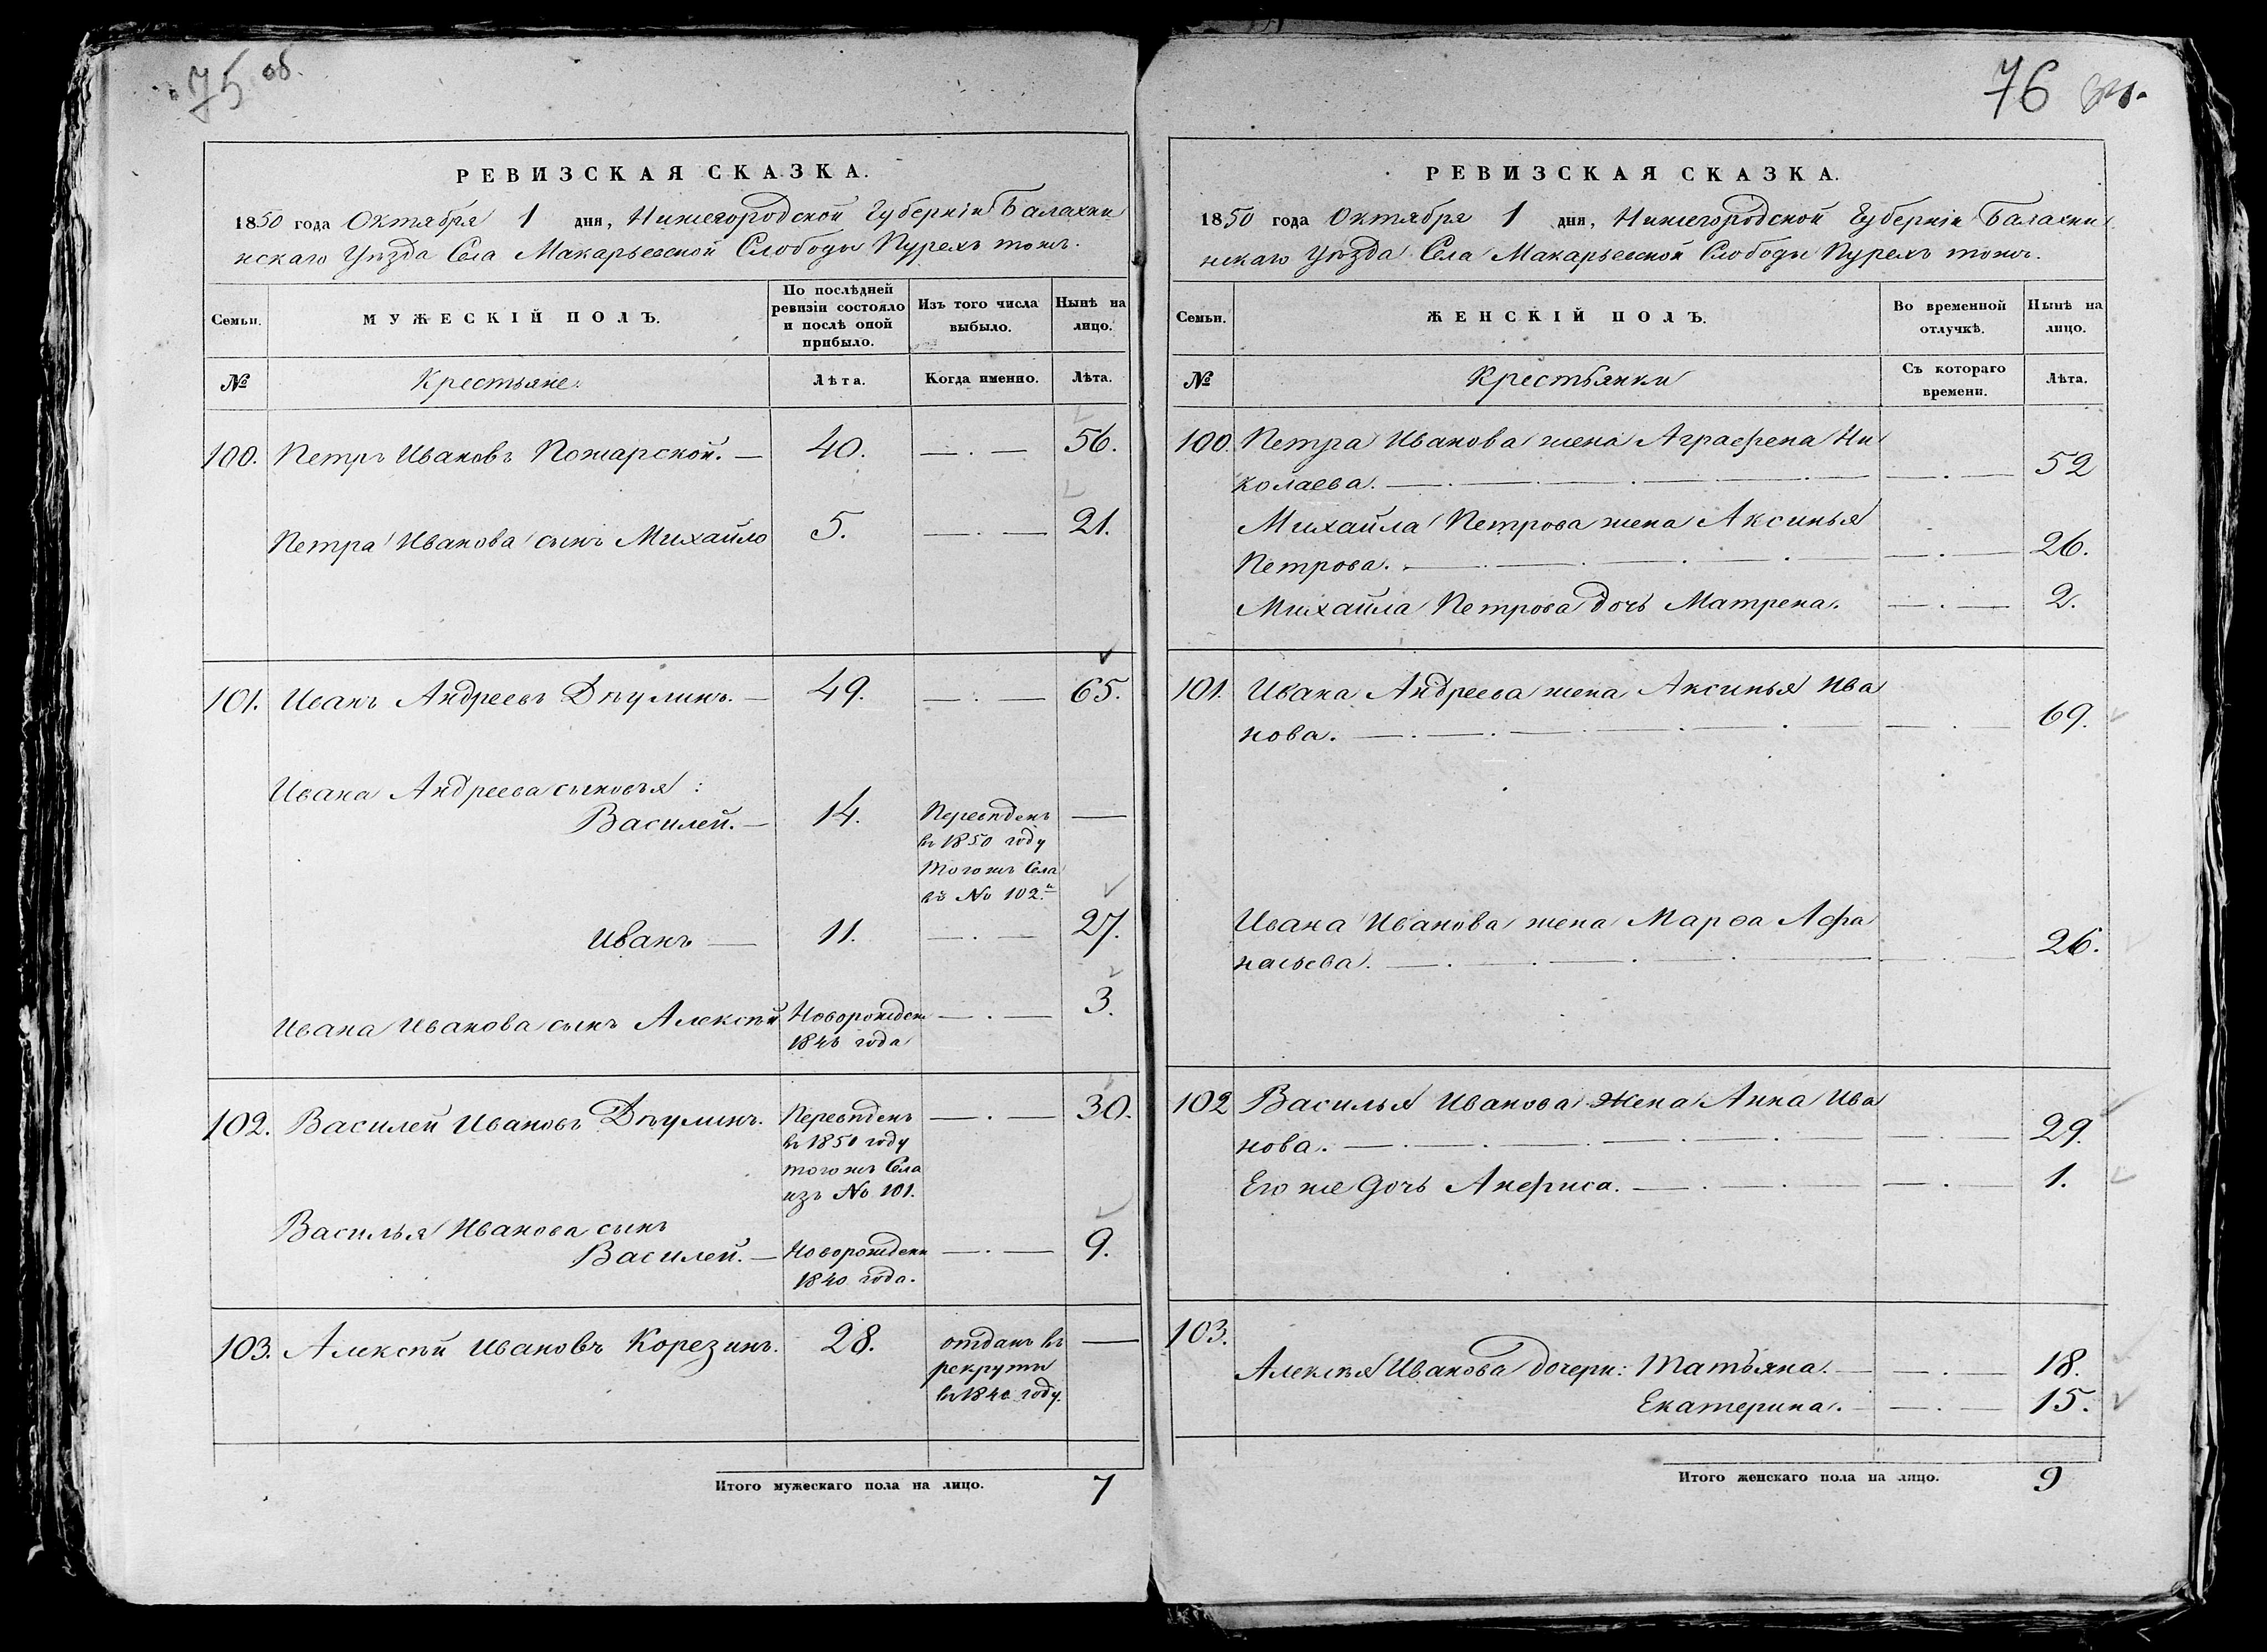 75 об.
РЕВИЗСКАЯ СКАЗКА.
1850 года Октября 1 дня, Нижегородской Губерніи Балахни
нскаго Уѣзда Села Макарьевской Слободы Пурехъ тожъ.
Семьи.
МУЖЕСКІЙ ПОЛЪ.
По послѣдней ревизіи состояло и послѣ оной прибыло.
Изъ того числа выбыло.
Нынѣ на лицо.
№
Крестьяне.
Лѣта.
Когда именно.
Лѣта.
100. Петръ Ивановъ Пожарской. — 40. — . — 56.
Петра Иванова сынъ Михайло 5. — . — 21.
101. Иванъ Андреевъ Дѣулинъ. — 49. — . — 65.
Ивана Андреева сыновья:
Василей. — 14. Переведенъ —
въ 1850 году
тогожъ Села
въ № 102й
Иванъ — 11. — . — 27.
Ивана Иванова сынъ Алексѣй Новорожден — . — 3.
184 года
102. Василей Ивановъ Дѣулинъ. Переведенъ — . — 30.
въ 1850 году
тогожъ Села
изъ № 101.
Василья Иванова сынъ
Василей. — Новорожденн — . — 9.
1840 года.
103. Алексѣй Ивановъ Корезинъ. 28. отданъ въ —
рекруты
въ 1840 году.
Итого мужескаго пола на лицо. 7
76
РЕВИЗСКАЯ СКАЗКА.
1850 года Октября 1 дня, Нижегородской Губерніи Балахни
нскаго Уѣзда Села Макарьевской Слободы Пурехъ тожъ.
Семьи.
ЖЕНСКІЙ ПОЛЪ.
Во временной отлучкѣ.
Нынѣ на лицо.
№
Крестьянки
Съ котораго времени.
Лѣта.
100. Петра Иванова жена Аграфена Ни
колаева. — . — 52
Михайла Петрова жена Аксинья
Петрова. — . — 26.
Михайла Петрова дочь Матрена. — . — 2.
101. Ивана Андреева жена Аксинья Ива
нова. — . — 69.
Ивана Иванова жена Марѳа Афа
насьева. — . — 26.
102 Василья Иванова жена Анна Ива
нова. — . — 29.
Его же дочь Анфиса. — . — 1.
103.
Алексѣя Иванова дочери: Татьяна. — . — 18.
Екатерина. — . — 15.
Итого женскаго пола на лицо. 9